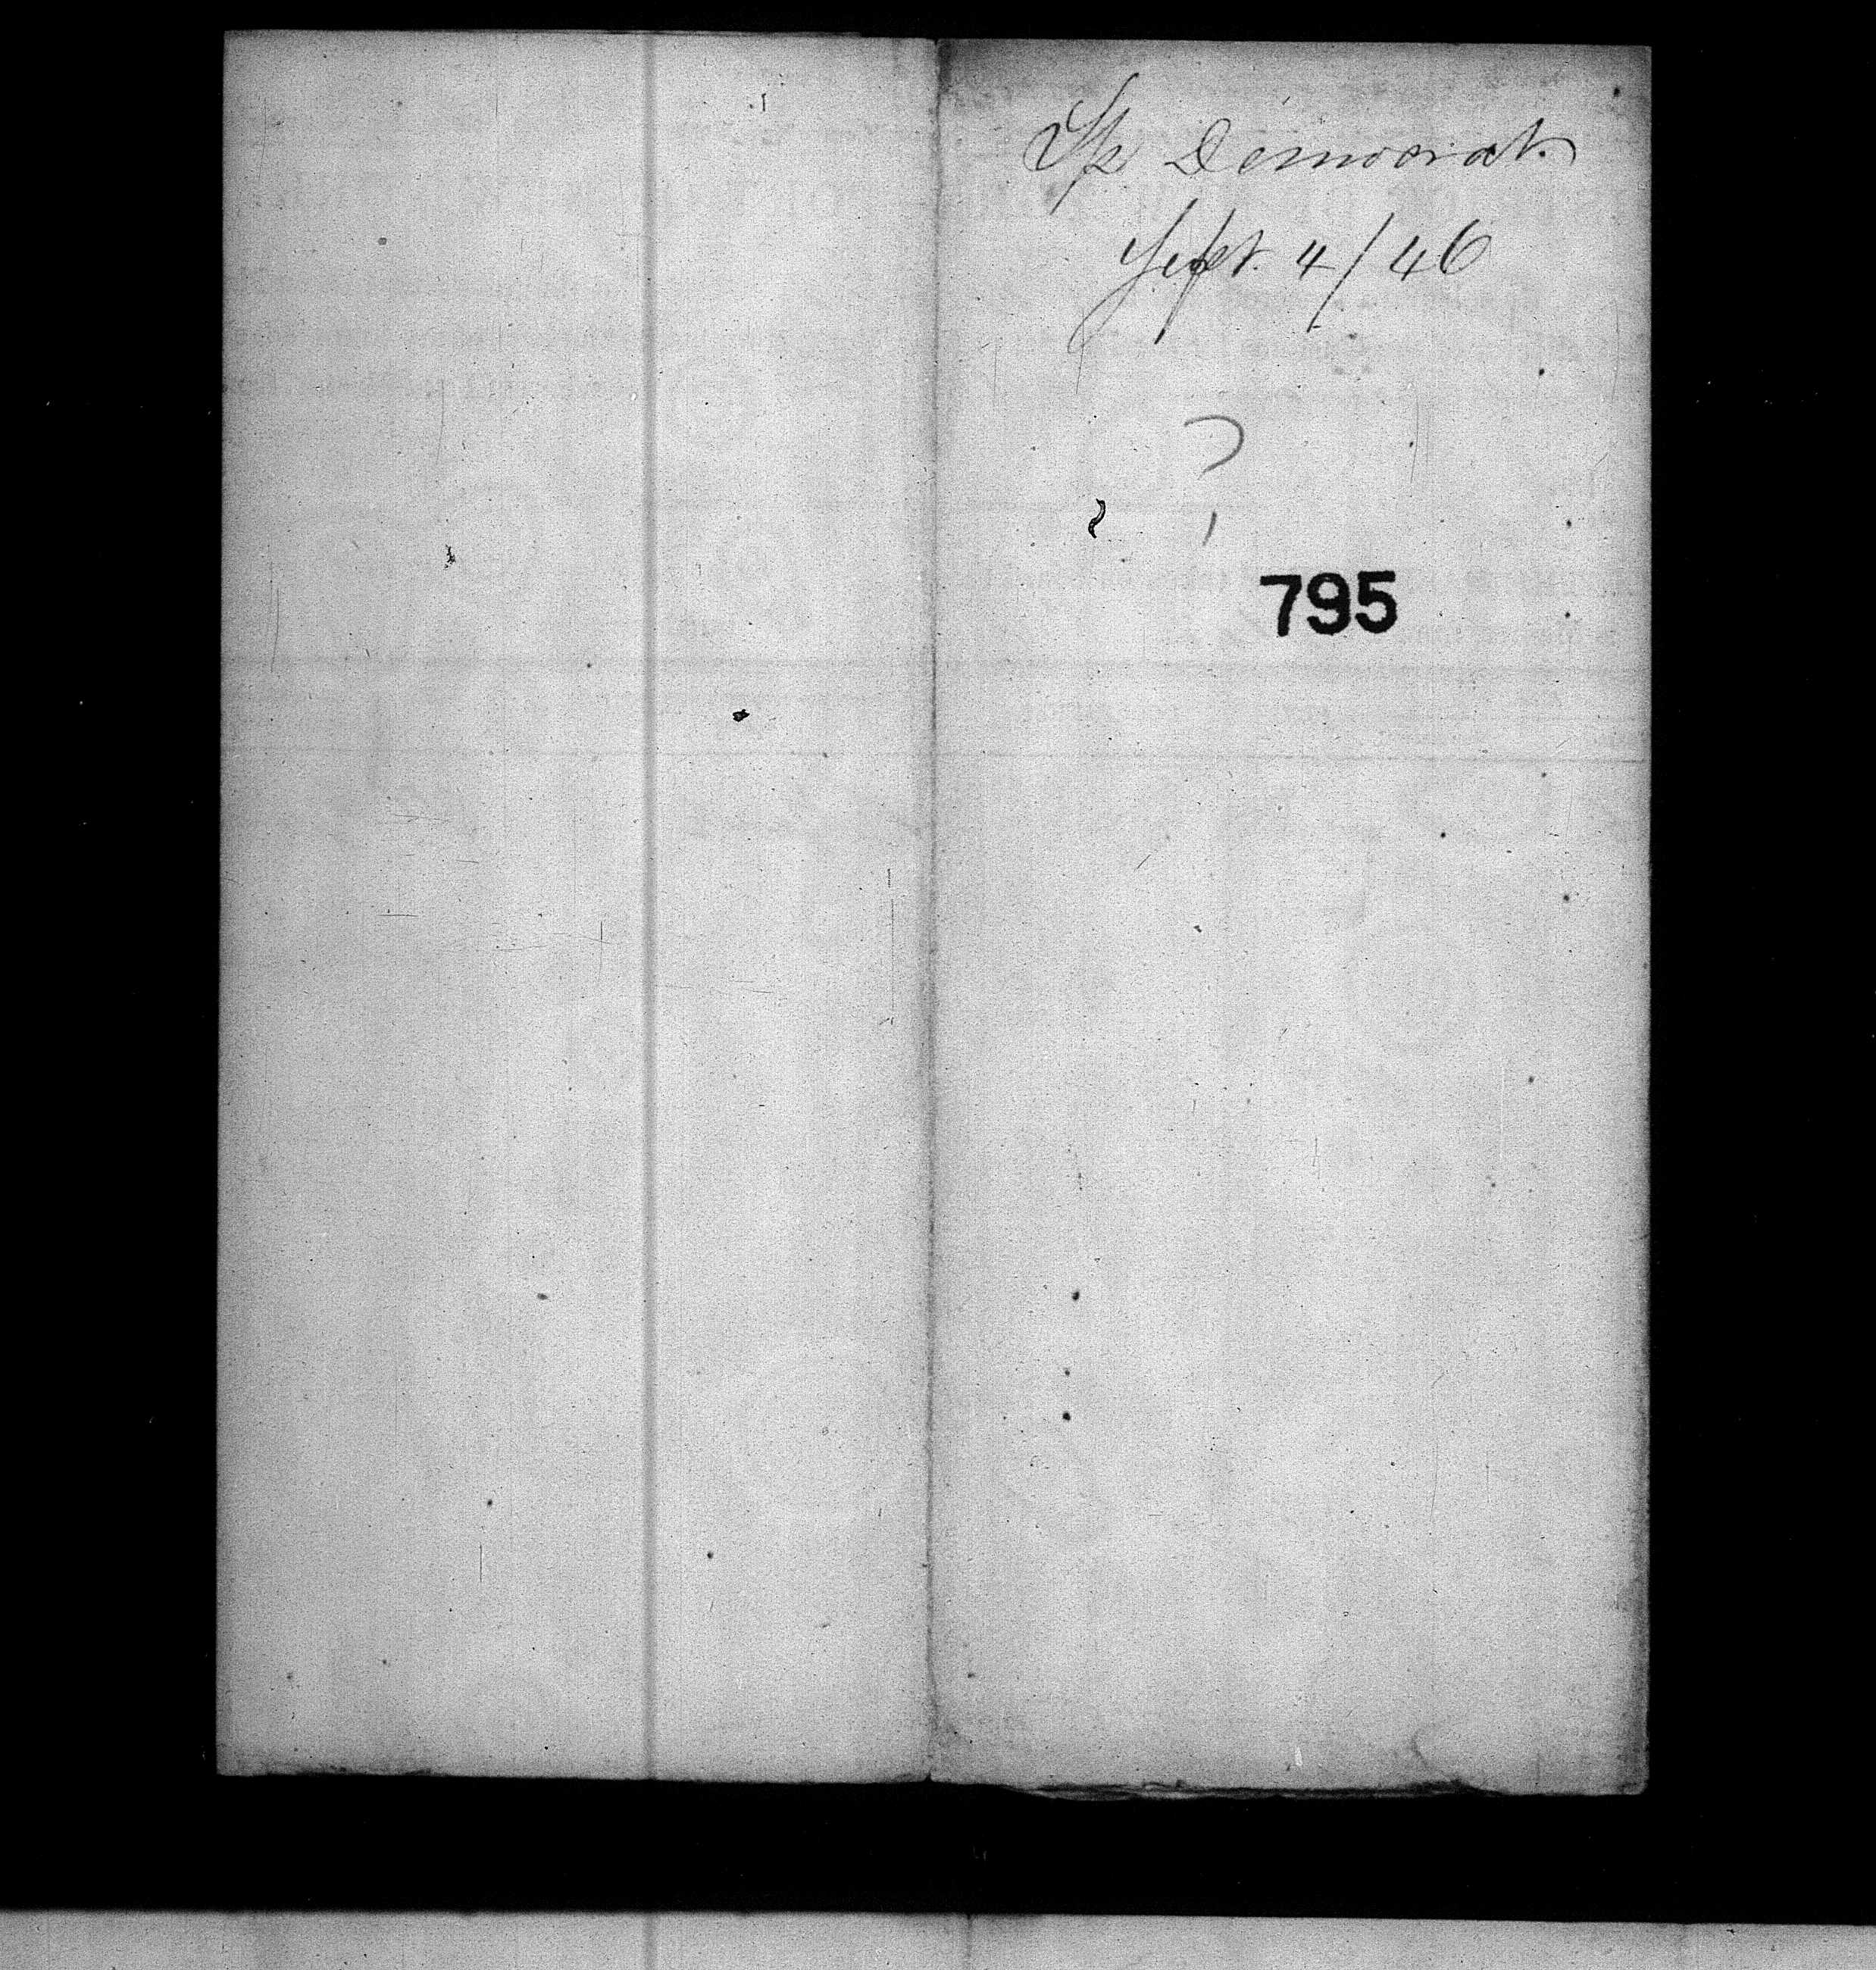 Sp Democrat.
Sept. 4/46
?
795